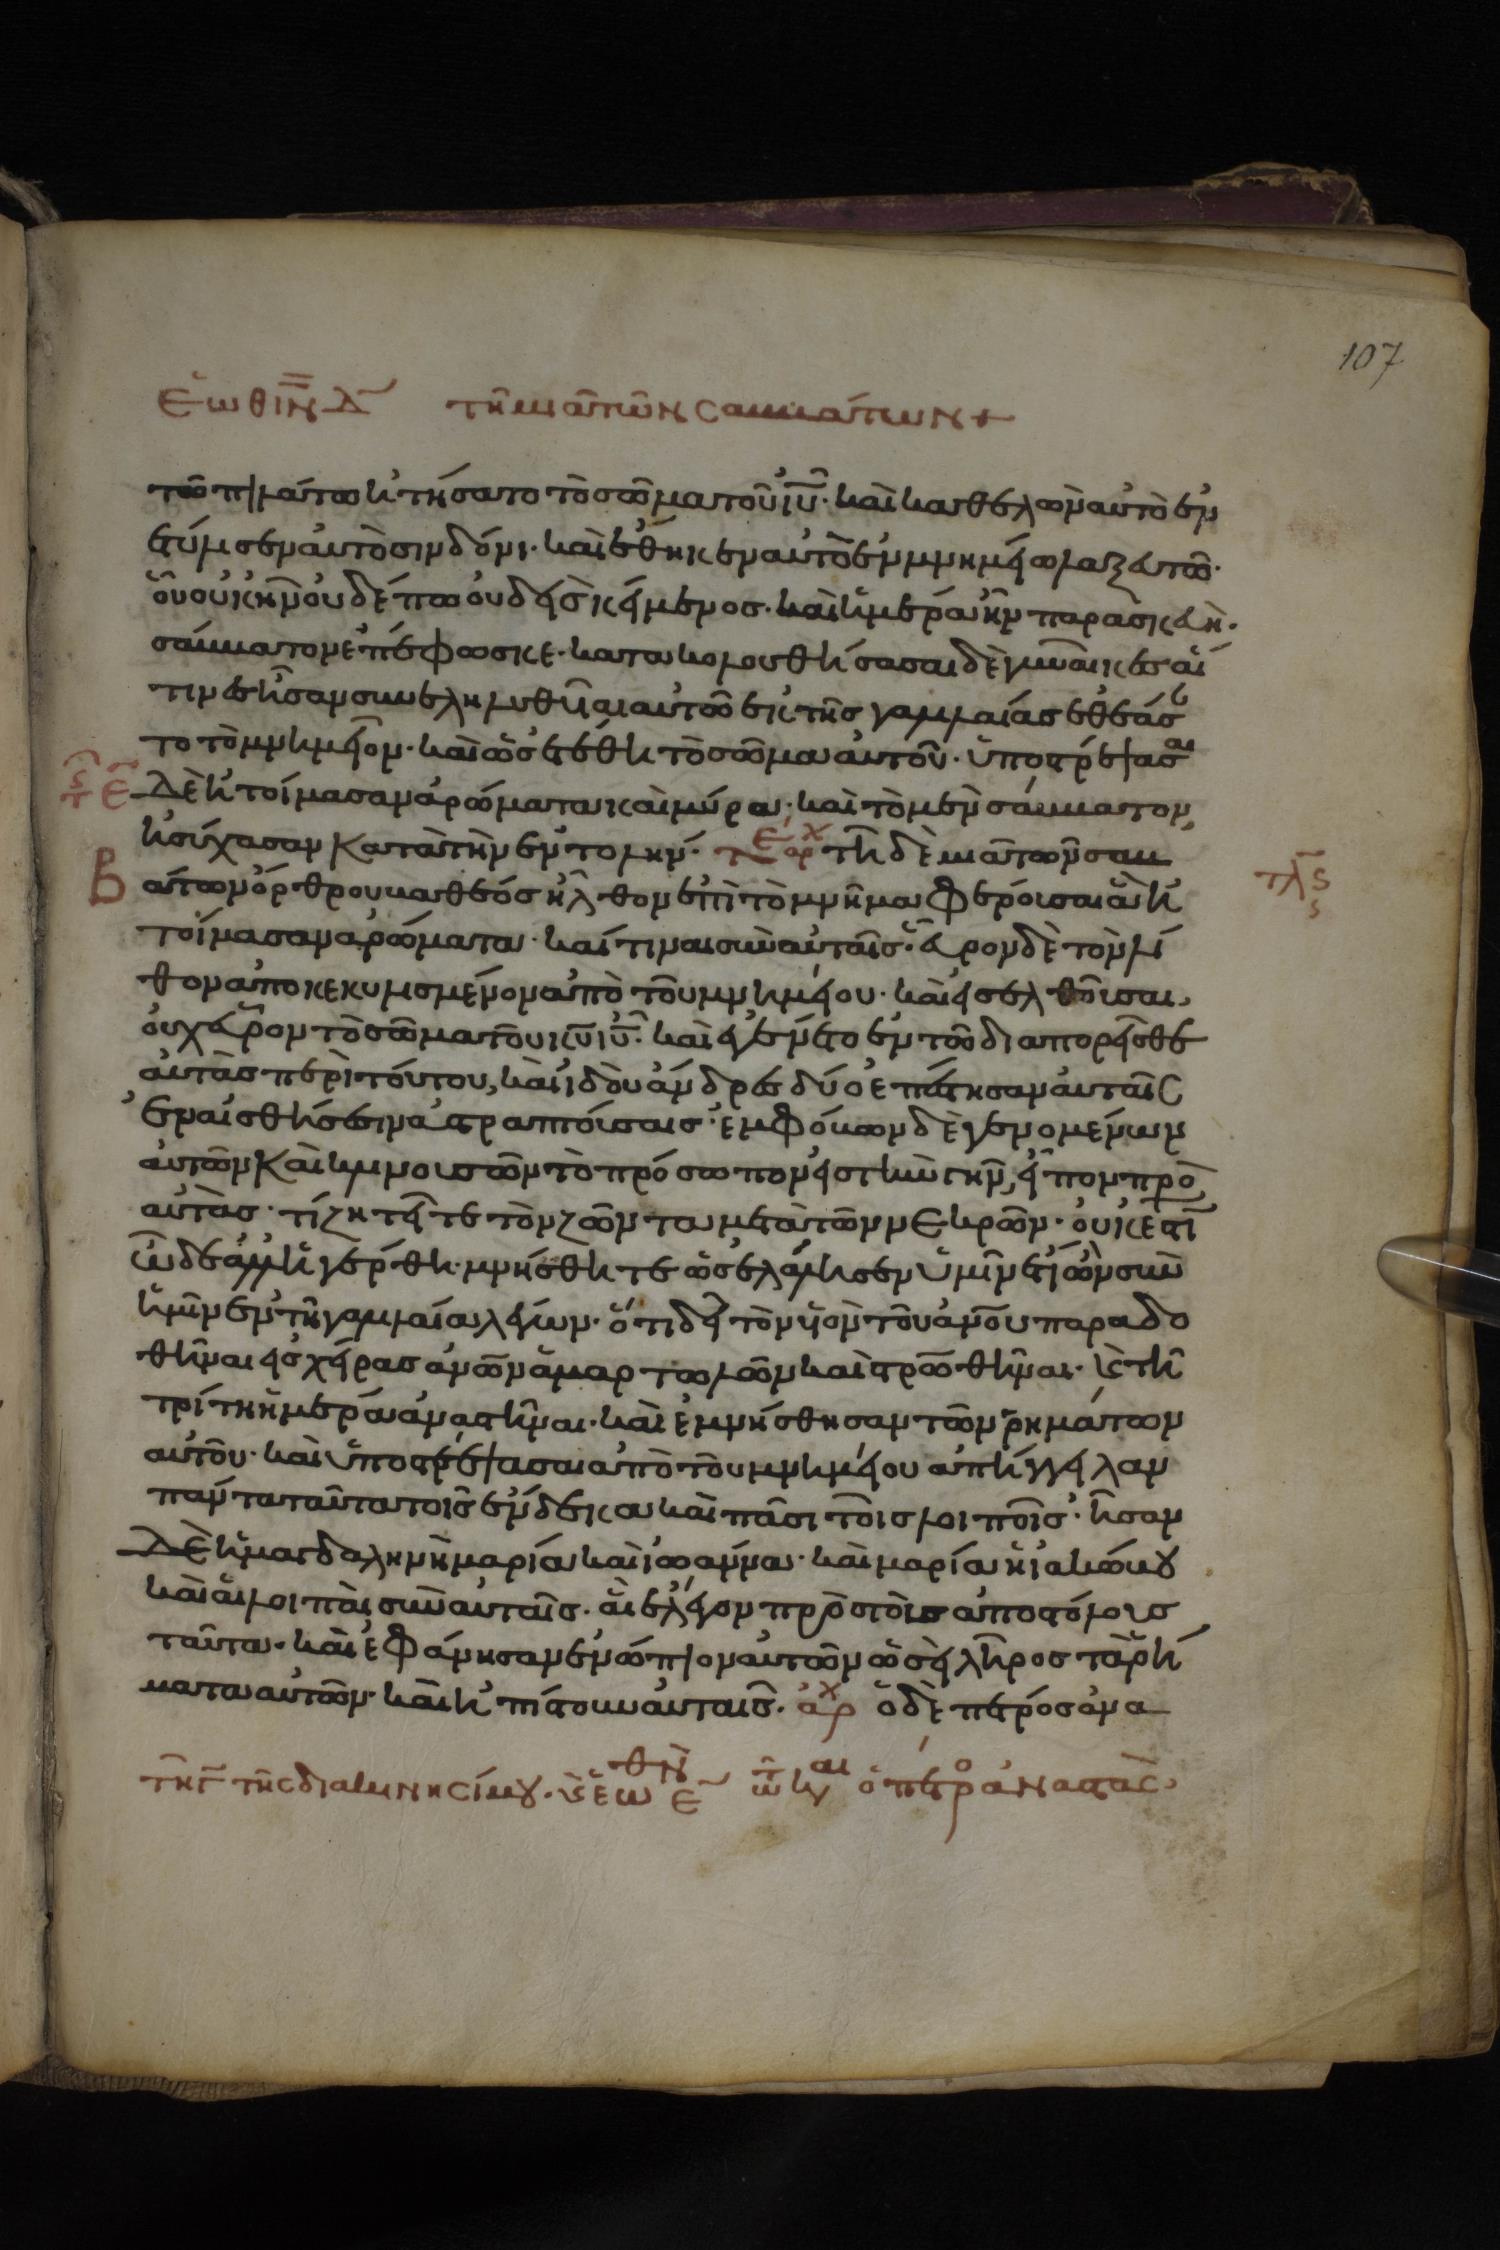 107
ἑωθιν Δ τῆ μιᾶ τῶν σαββάτων +
τῶ πιλάτω ἠτήσατο τὸ σῶμα τοῦ ἰῦ. καὶ καθελὼν αὐτὸ ἐν
ετύλισεν αὐτὸ σινδόνι. καὶ ἔθηκεν αὐτὸ ἐν μνημείω λαξευτῶ.
οὗ οὐκ ἦν οὐδέπω οὐδεὶς κείμενος. καὶ ἡμέρα ἦν παρασκευὴ.
σάββατον ἐπέφωσκε. κατακολουθήσασαι δὲ γυναῖκες αἵ
τινες ἦσαν συνεληλυθῦιαι αὐτῶ ἐκ τῆς γαλιλαίας ἐθεάσα
το τὸ μνημεῖον. καὶ ὡς ἐτέθη τὸ σῶμα αὐτοῦ. ὑποστρέψασαι
δὲ ἡτοίμασαν ἀρώματα καὶ μύρα. καὶ τὸ μὲν σάββατον,
ἡσύχασαν κατὰ τὴν ἐντολήν. τε ἀρχ τῆ δὲ μιᾶ τῶν σαββ
τλ ς
Β
άτων ὄρθρου βαθέος ἦλθον ἐπὶ τὸ μνῆμα φέρουσαι ἃ ἡ
τοίμασαν ἀρώματα. καί τιναι σὺν αὐταῖς. εὗρον δὲ τὸν λί
θον ἀποκεκυλισμένον ἀπὸ τοῦ μνημείου. καὶ εἰσελθοῦσαι
οὐχ εὗρον τὸ σῶμα τοῦ κυ ἰῦ. καὶ ἐγένετο ἐν τῶ διαπορεῖσθε
αὐτὰς περὶ τούτου, καὶ ἰδοὺ ἄνδρες δύο ἐπέστησαν αὐταῖς
ἐν αἰσθήσεσιν ἀστραπτούσαις. ἐμφόβων δὲ γενομένων
αὐτῶν καὶ κλινουσῶν τὸ πρόσωπον εἰς τὴν γῆν, εἶπον πρὸς
αὐτὰς. τί ζητεῖτε τὸν ζῶντα μετὰ τῶν νεκρῶν. οὐκ ἔστιν
ὧδε ἀλλ' ἠγέρθη. μνήσθητε ὡς ἐλάλησεν ὑμῖν ἔτι ὢν σὺν
ἡμῖν ἐν τῆ γαλιλαία λέγων. ὅτι δεῖ τὸν ὑϊὸν τοῦ ἀνου παραδο
θῆναι εἰς χεῖρας ἀνων ἁμαρτωλῶν καὶ στρωθῆναι. καὶ τῆ
τρίτη ἡμέρα ἀναστῆναι. καὶ ἐμνήσθησαν τῶν ῥημάτων
αὐτοῦ. καὶ ὑποστρέψασαι ἀπὸ τοῦ μνημείου ἀπήγγειλαν
πάντα ταῦτα τοῖς ἕνδεκα καὶ πᾶσι τοῖς λοιποῖς. ἦσαν
δὲ ἡ μαγδαληνὴ μαρία καὶ ἰωάννα. καὶ μαρία ἡ ἰακώβου
καὶ αἱ λοιπαὶ σὺν αὐταῖς. αἳ ἔλεγον πρὸς τοὺς ἀποστόλους
ταῦτα. καὶ ἐφάνησαν ἐνώπιον αὐτῶν ὡσεὶ λῆρος τὰ ῥή
ματα αὐτῶν. καὶ ἠπίστουν αὐταῖς. ἀρχ ὁ δὲ πέτρος ἀνα
τῆ Γ τῆς διακινησίμου. καὶ ἑωθν Ε τῶ κ ὁ πέτρο ἀναστὰς